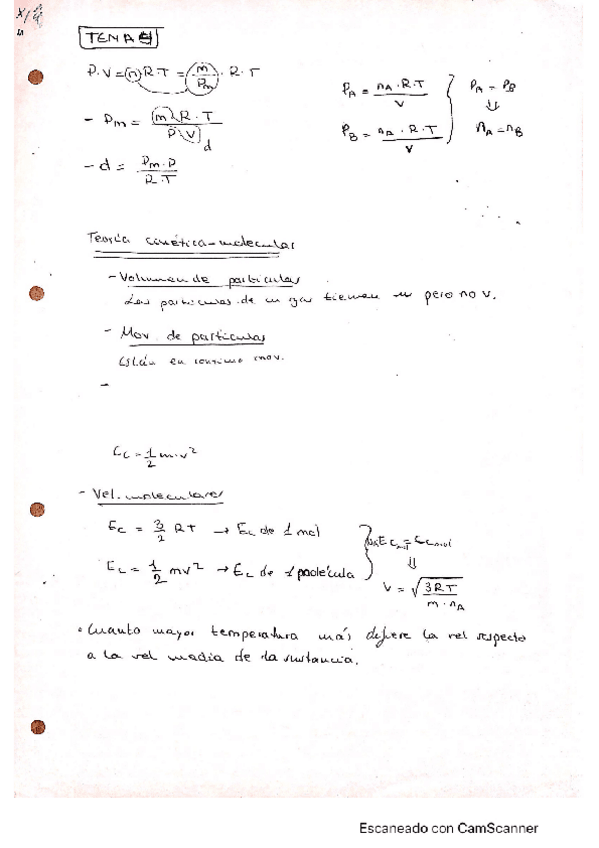 X/4
TEMA 4
P·V = n R·T = m/Pm · R·T
PA = nA·R·T / V
PA = PB
⇓
- Pm = m R·T / P·V
d
PB = nB·R·T / V
nA = nB
- d = Pm·P / R·T
Teoría cinética-molecular
- Volumen de partículas
Las partículas de un gas tienen m pero no v.
- Mov. de partículas
Están en continuo mov.
-
Ec = 1/2 m·v²
- Vel. moleculares
Ec = 3/2 RT → Ec de 1 mol
Ec = 1/2 mv² → Ec de 1 molécula
⇓
v = √(3RT / m·nA)
· Cuanto mayor temperatura más difiere la vel respecto
a la vel media de la sustancia.
Escaneado con CamScanner